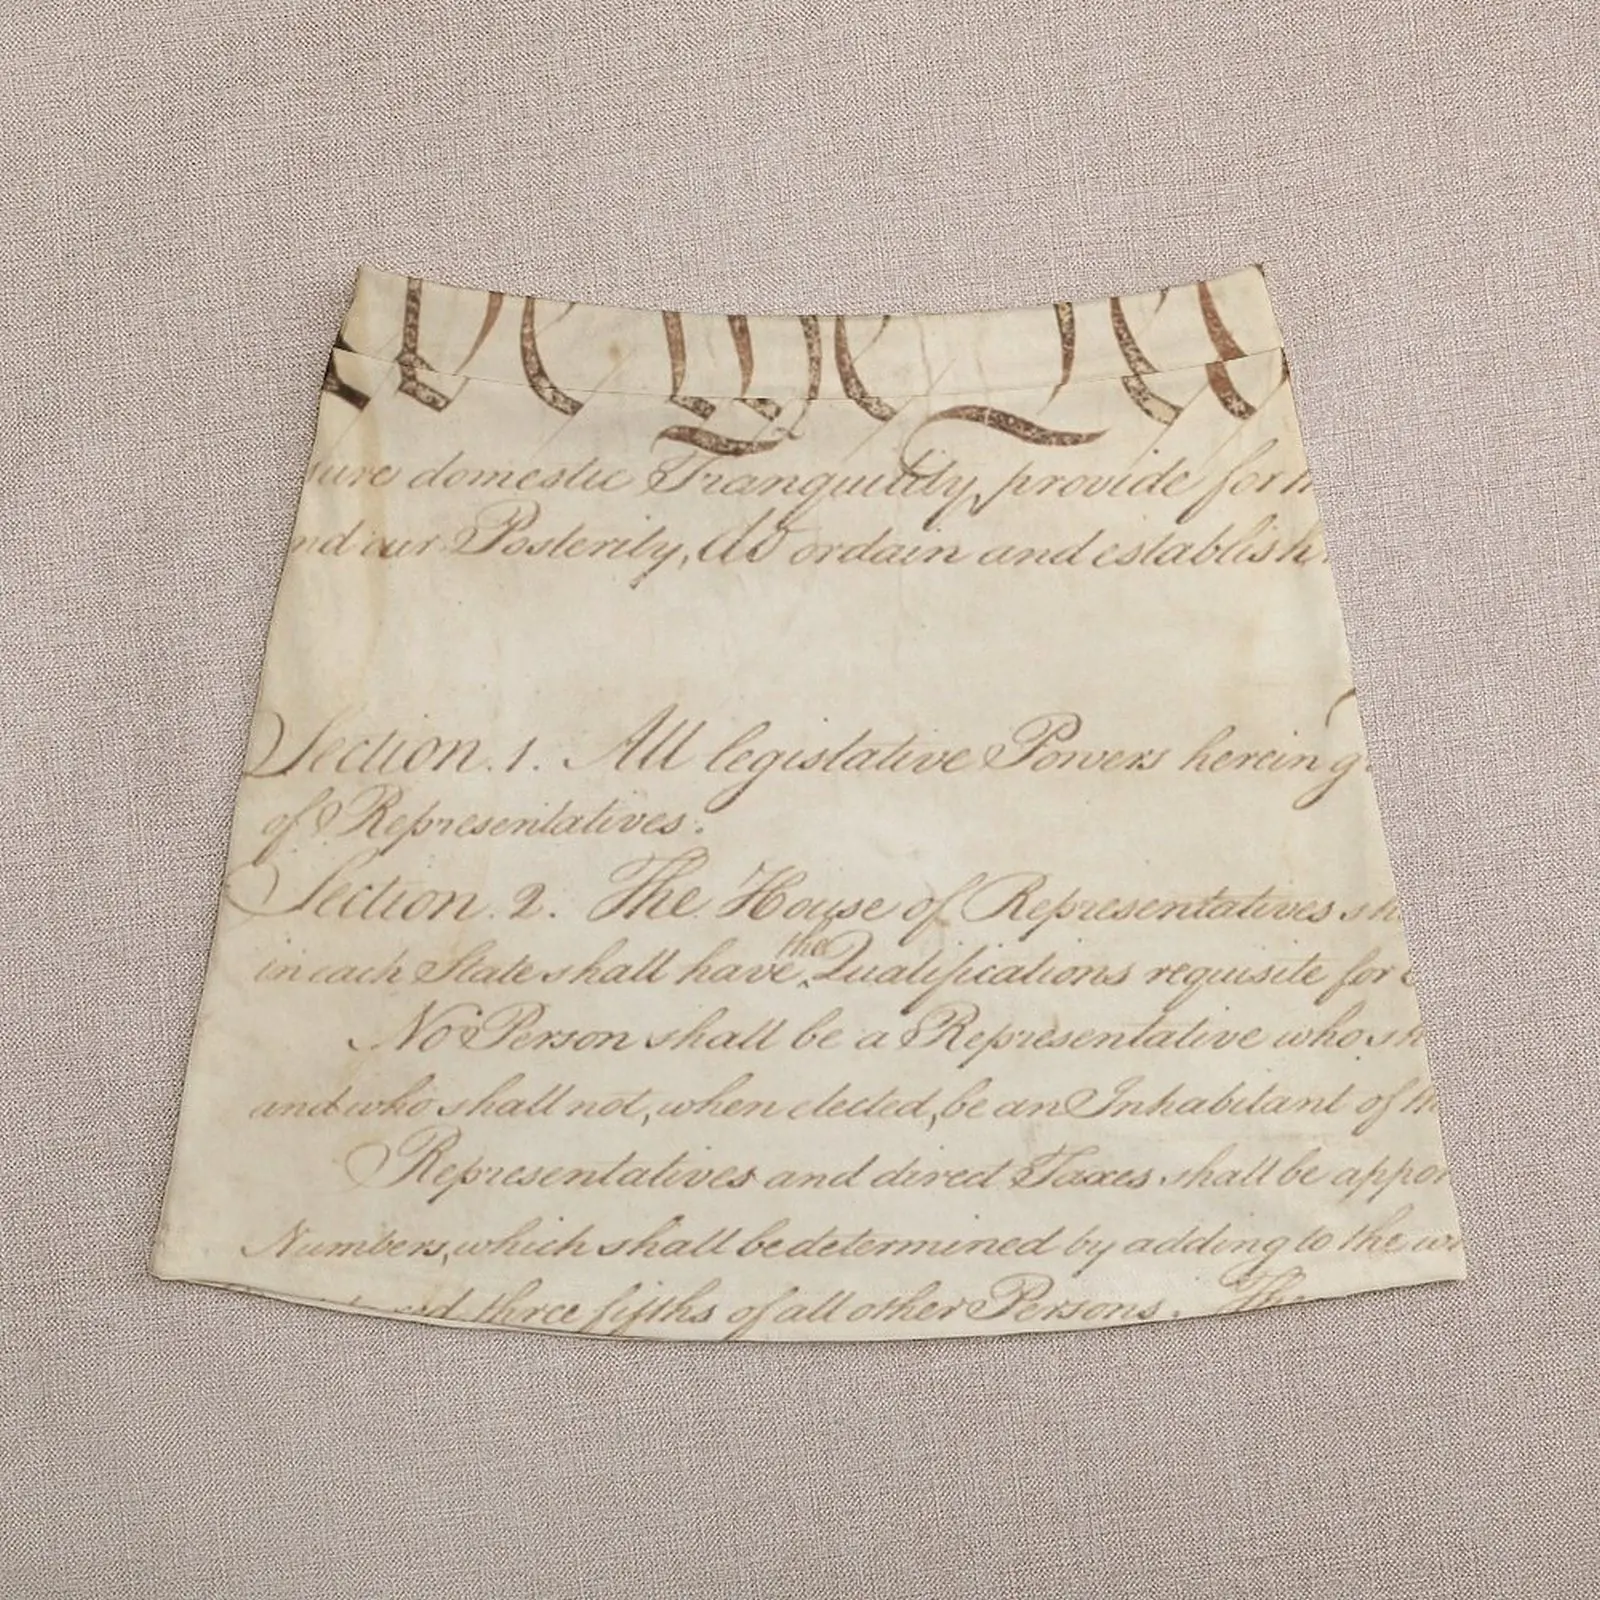 We the Peo
sure domestic Tranquility, provide for
nd our Posterity, do ordain and establish
Section. 1. All legislative Powers herein g
of Representatives.
Section. 2. The House of Representatives sh
the
in each State shall have Qualifications requisite for
No Person shall be a Representative who sh
and who shall not, when elected, be an Inhabitant of th
Representatives and direct Taxes shall be appor
Numbers, which shall be determined by adding to the wh
ed, three fifths of all other Persons. The